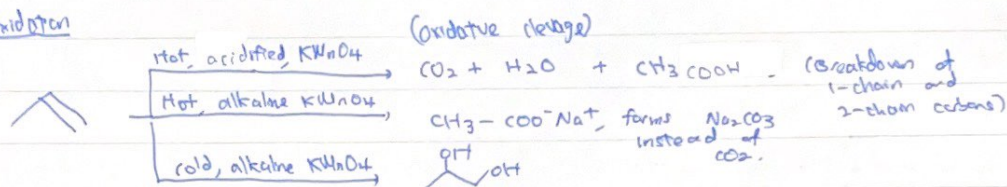 xidation
(oxidative clevage)
Hot, acidified, KMnO4
CO2 + H2O + CH3COOH - (Breakdown of
1-chain and
2-chain carbons)
Hot, alkaline KMnO4
CH3-COO-Na+, forms Na2CO3
instead of
CO2.
cold, alkaline KMnO4
OH
OH